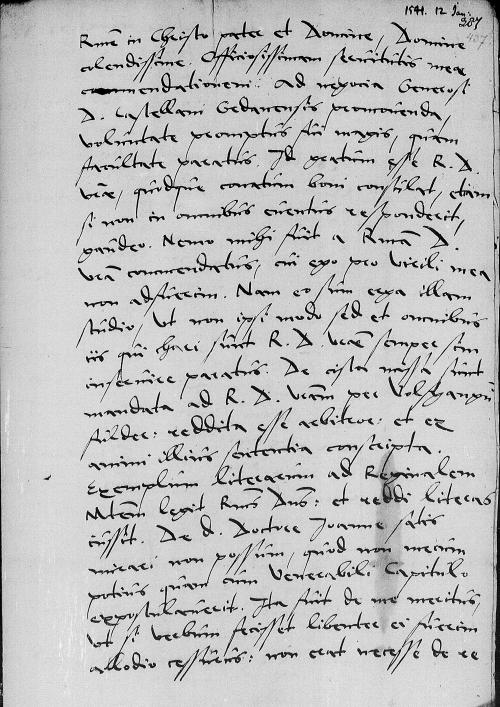 1541. 12 Jan:
287
Rme in Christo pater et Domine, Domine
colendissime. Officiosissimam servitutis meae
commendationem. Ad negocia Generosi
D. Castellani Gedanensis promovenda,
voluntate promptus fui magis, quam
facultate paratus. Id gratum esse R. D.
vrae, quidque conatum boni consulat, etiam
si non in omnibus eventus responderit,
gaudeo. Nemo mihi fuit a Rma D.
vra commendatus, cui ego pro virili mea
non adfuerim. Nam eo sum erga illam
studio, ut non ipsi modo sed et omnibus
iis qui chari sunt R. D. vrae semper sim
inservire paratus. De cista missa sunt
mandata ad R. D. vram per
reddita esse arbitror: et ex
animi illius sententia conscripta.
Exemplum literarum ad Reginalem
Mtem legit Rmus Dnus: et reddi literas
iussit. De d. Doctore Joanne satis
mirari non possum, quod non mecum
potius quam cum Venerabili Capitulo
expostulaverit. Ita fuit de me meritus,
ut si verbum fecisset libenter ei fuerim
allodio cessurus: non erat necesse de re